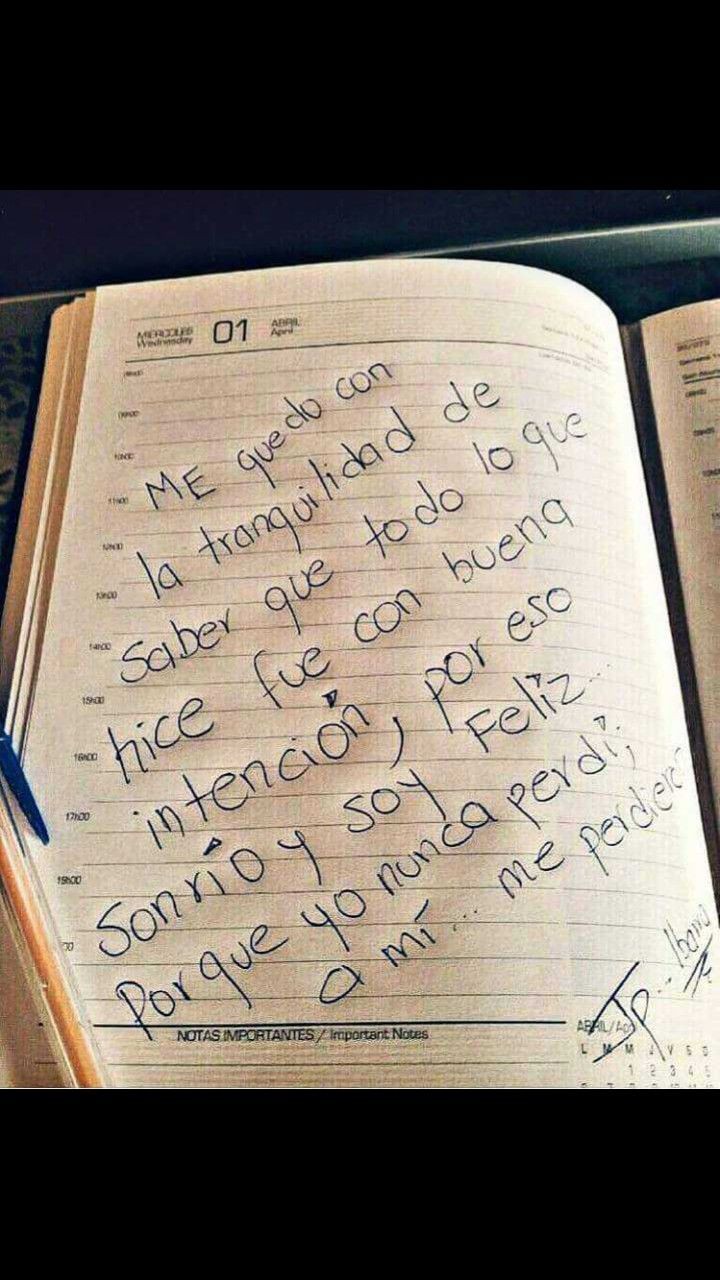 MIERCOLES 01 ABRIL
Wednesday April
10h00
11h00
12h00
13h00
14h00
15h00
16h00
17h00
ME quedo con
la tranquilidad de
Saber que todo lo que
hice fue con buena
intención, por eso
Sonrío y soy Feliz...
Porque yo nunca perdí;
a mí... me perdieron
JP... Ibarra
NOTAS IMPORTANTES / Important Notes
ABRIL/Apr
L M M J V S D
1 2 3 4 5